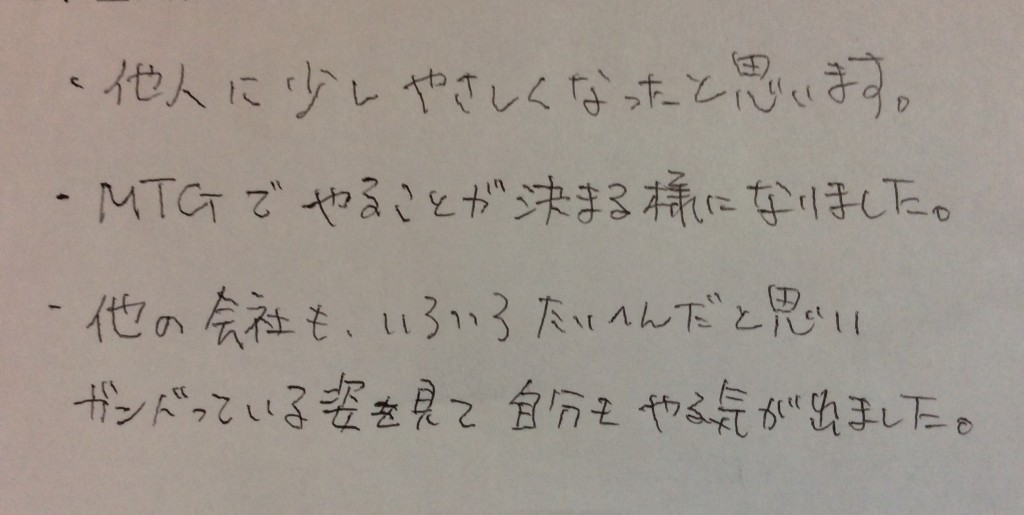 ・他人に少しやさしくなったと思います。
・MTGでやることが決まる様になりました。
・他の会社も、いろいろたいへんだと思い
ガンバっている姿を見て自分もやる気が出ました。